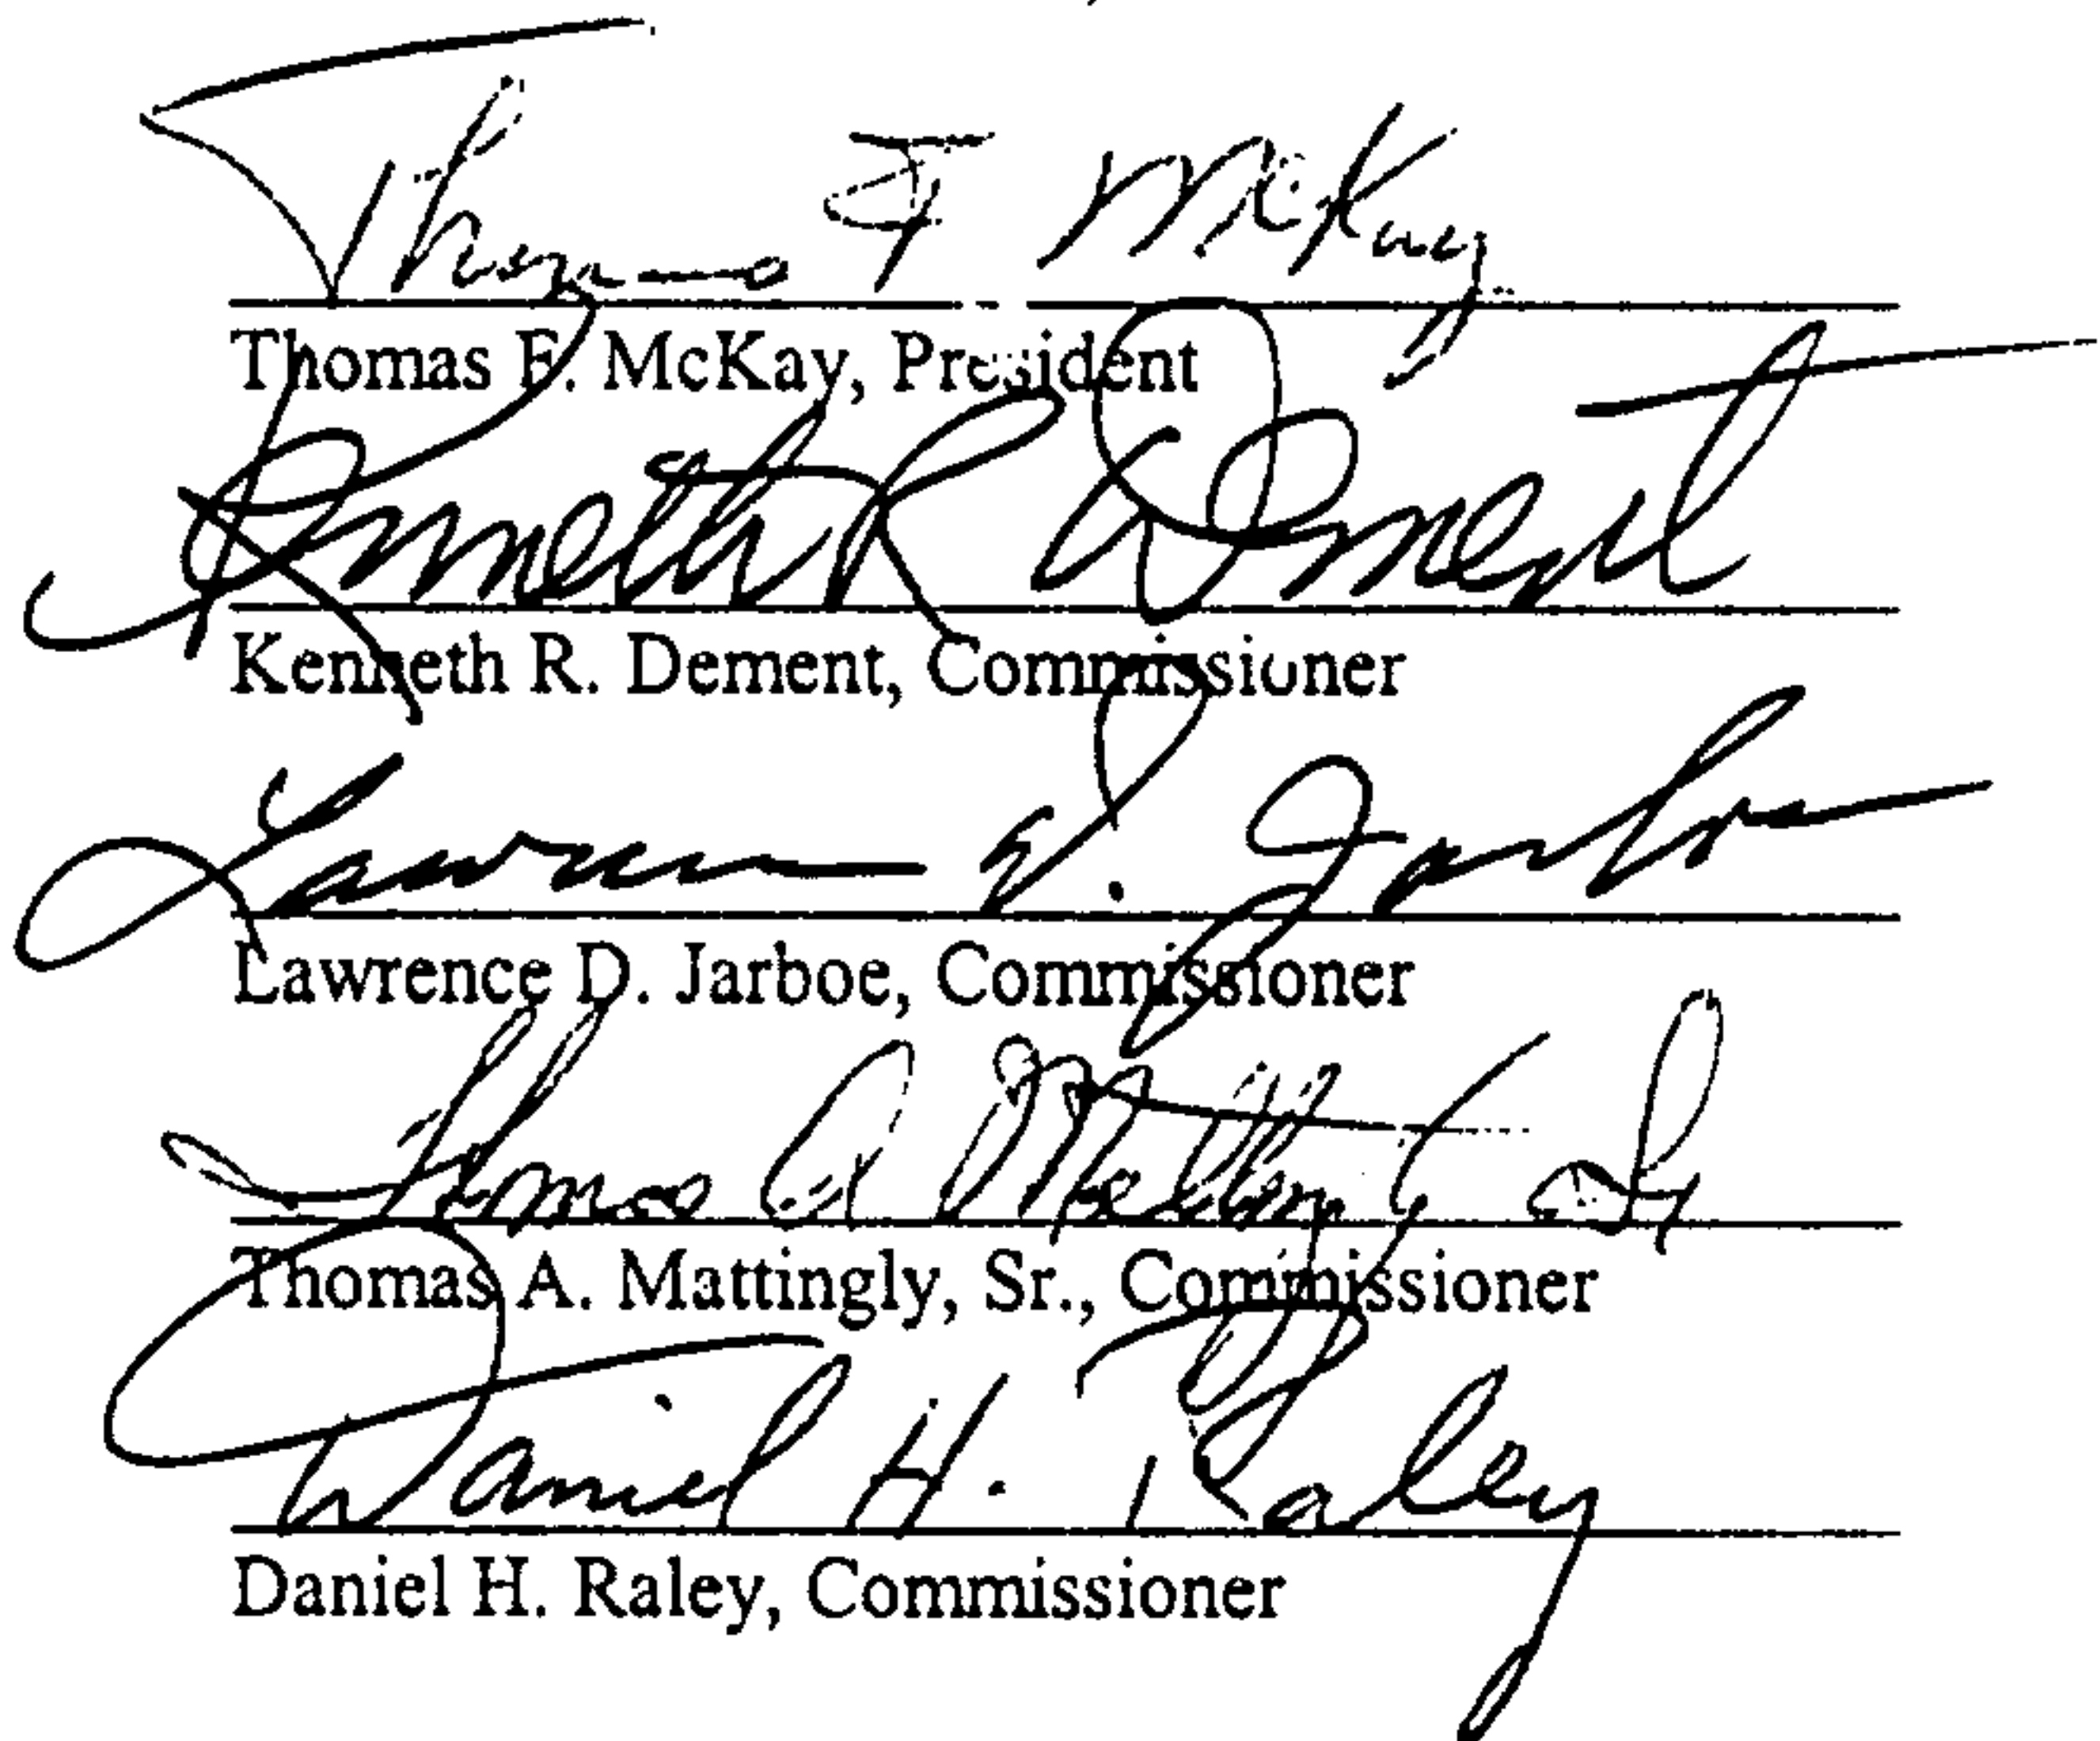 Thomas F McKay
Thomas F. McKay, President
Kenneth R Dement
Kenneth R. Dement, Commissioner
Lawrence D. Jarboe
Lawrence D. Jarboe, Commissioner
Thomas A Mattingly Sr
Thomas A. Mattingly, Sr., Commissioner
Daniel H. Raley
Daniel H. Raley, Commissioner